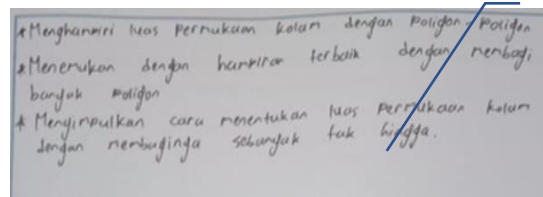 * Menghampiri luas permukaan kolam dengan poligon-poligon
* Menemukan dengan hampiran terbaik dengan membagi
banyak poligon
* Menyimpulkan cara menentukan luas permukaan kolam
dengan membaginya sebanyak tak hingga.